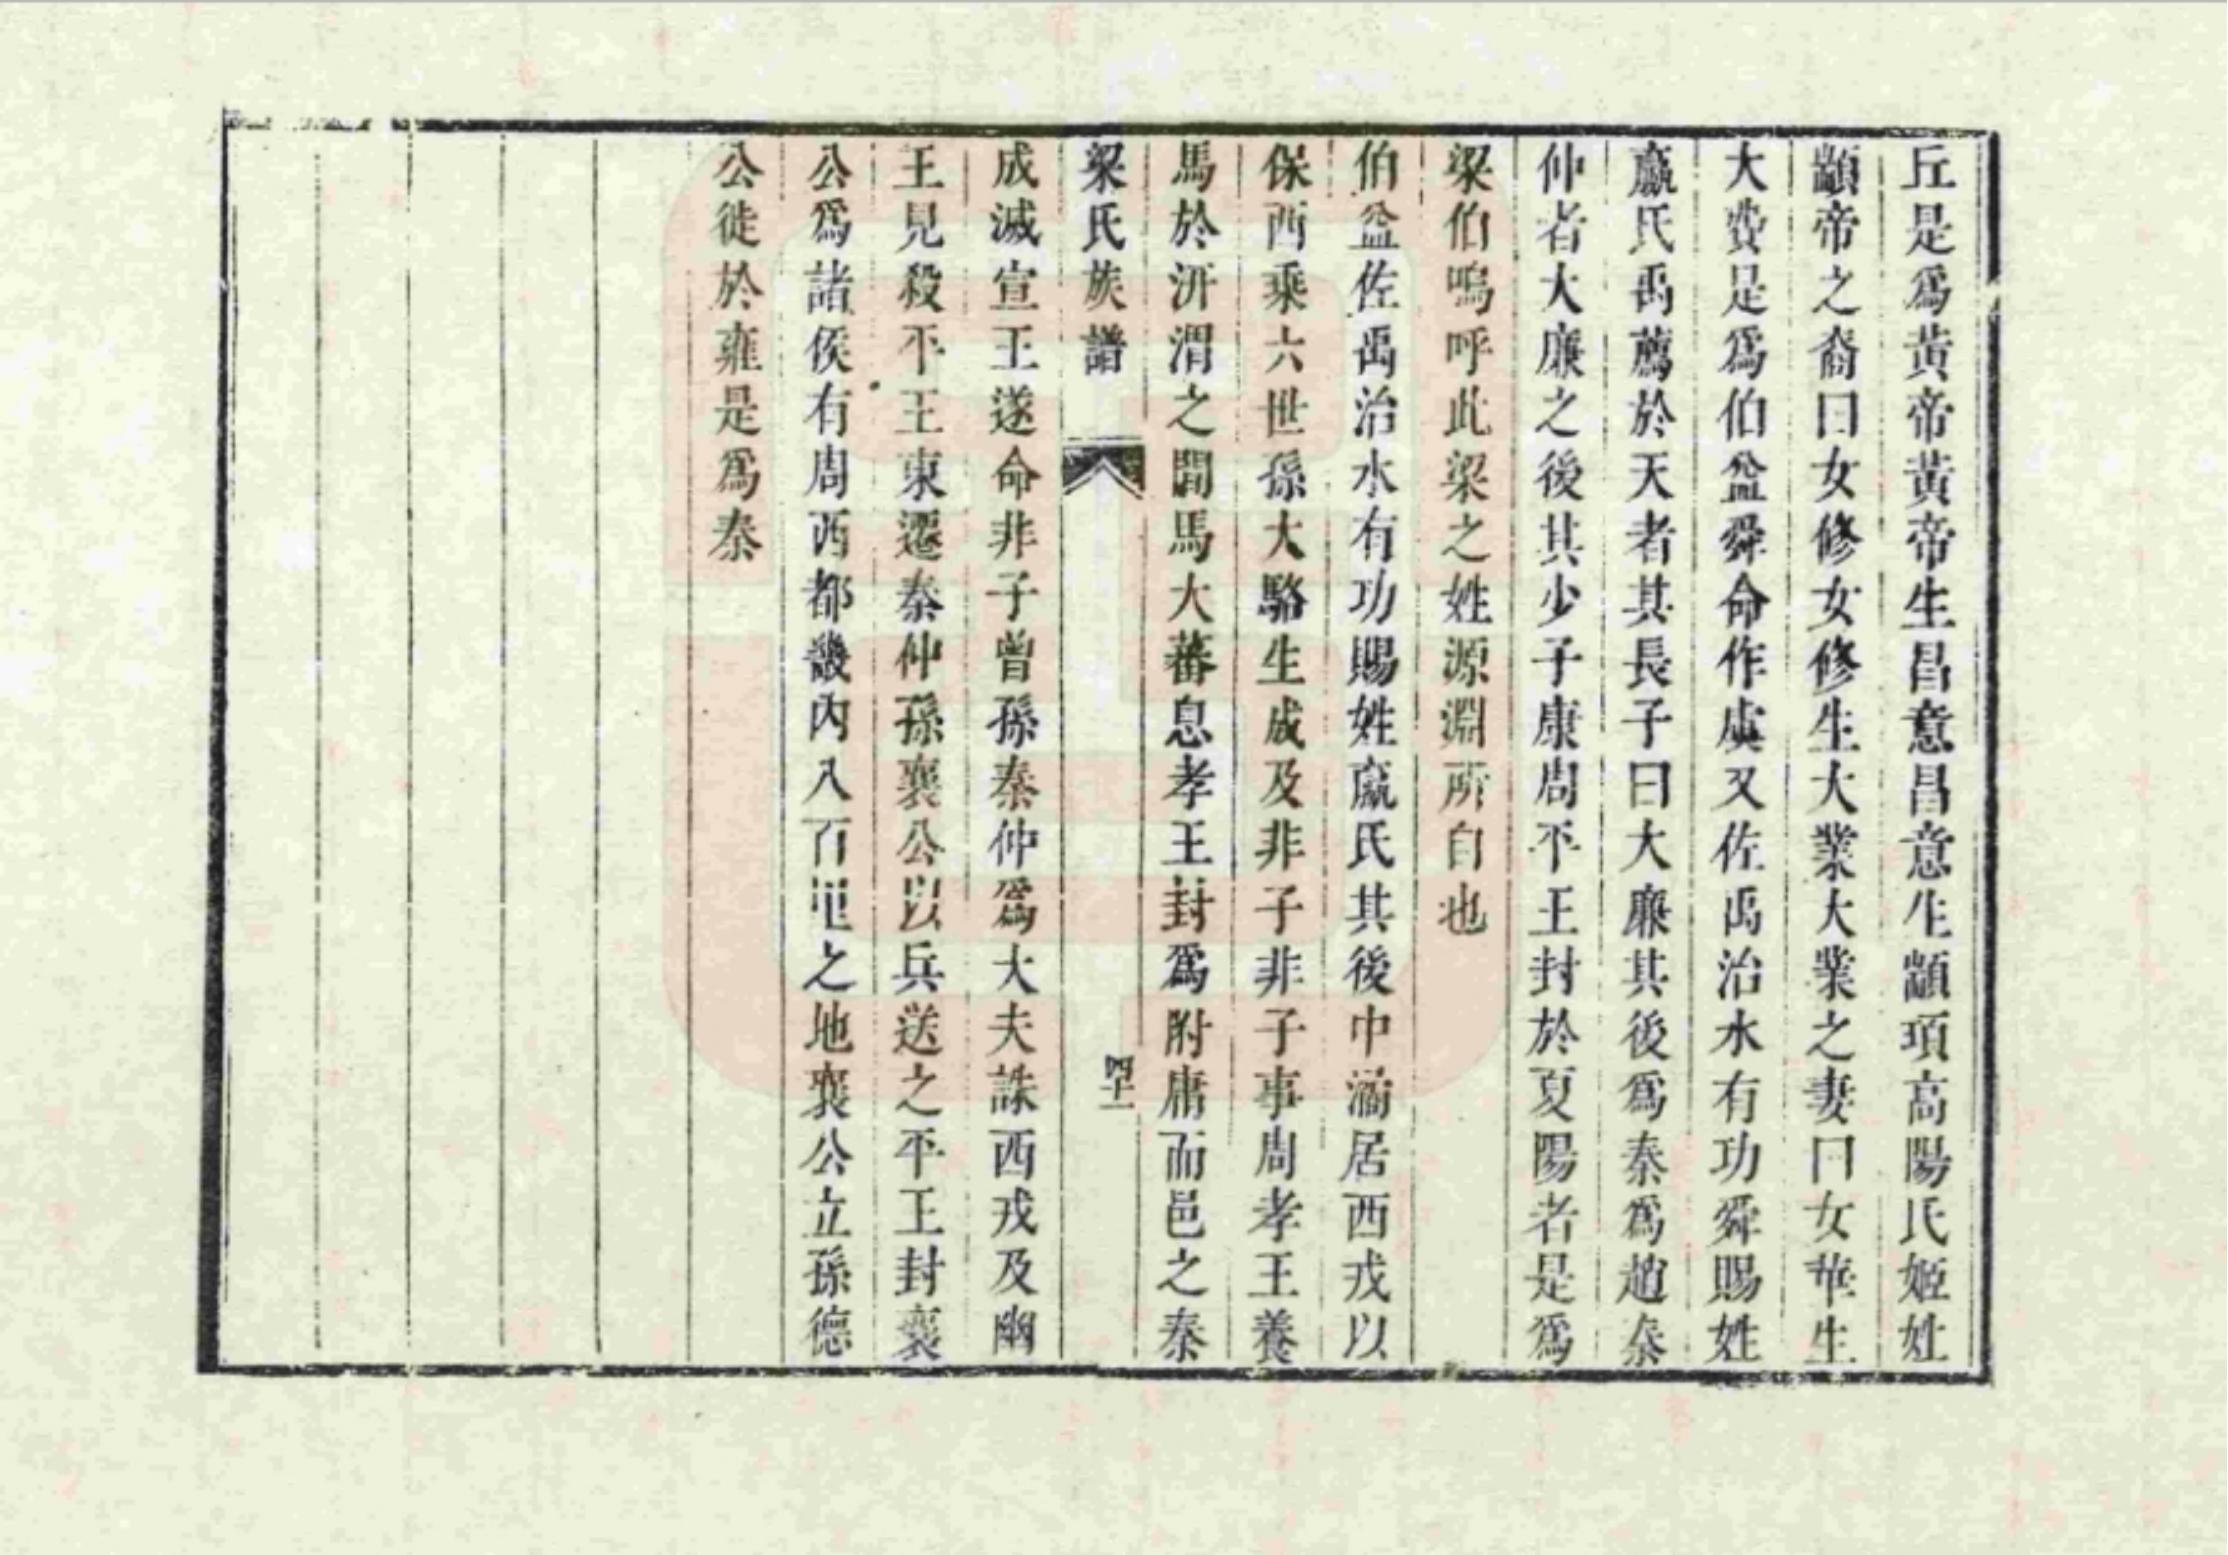 丘是爲黃帝黃帝生昌意昌意生顓頊高陽氏姬姓
顓帝之裔曰女修女修生大業大業之妻曰女華生
大費是爲伯益舜命作虞又佐禹治水有功舜賜姓
嬴氏禹薦於天者其長子曰大廉其後爲秦爲趙秦
仲者大廉之後其少子康周平王封於夏陽者是爲
梁伯嗚呼此梁之姓源淵所自也
伯益佐禹治水有功賜姓嬴氏其後中潏居西戎以
保西乗六世孫大駱生成及非子非子事周孝王養
馬於汧渭之間馬大蕃息孝王封爲附庸而邑之秦
梁氏族譜 四十一
成滅宣王遂命非子曾孫秦仲爲大夫誅西戎及幽
王見殺平王東遷秦仲孫襄公以兵送之平王封襄
公爲諸侯有周西都畿內八百里之地襄公立孫德
公徙於雍是爲秦